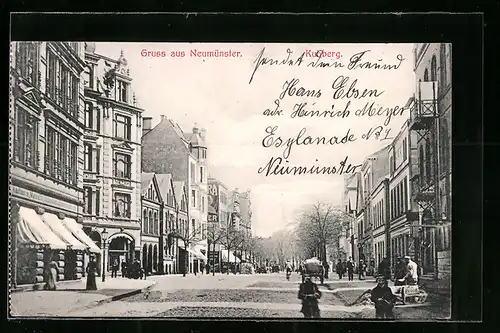 Gruss aus Neumünster.
Kuhberg.
sendet dem Freund
Hans Ebsen
adr. Heinrich Meyer
Esplanade No 1
Neumünster